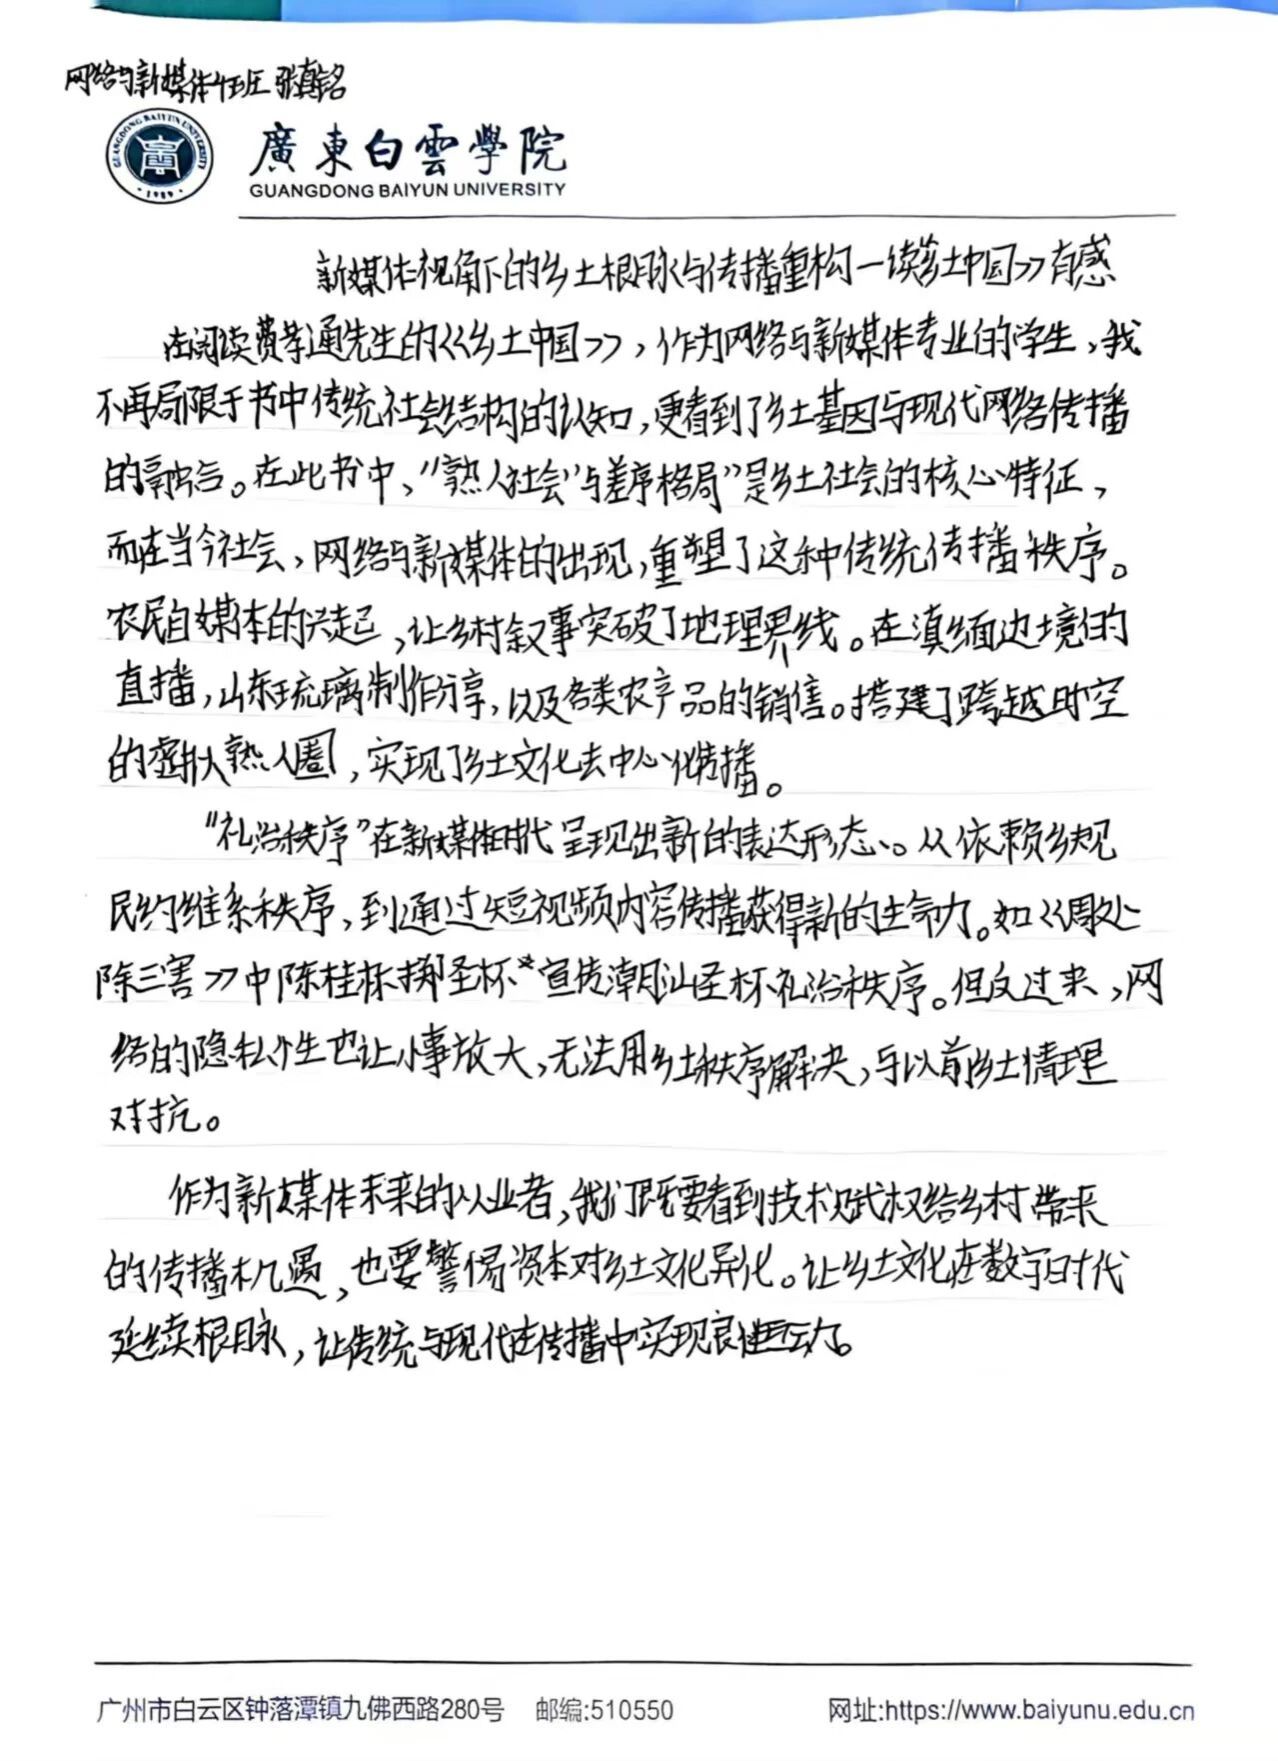 网络与新媒体4班 张真铭
GUANGDONG BAIYUN UNIVERSITY
1989
廣東白雲學院
GUANGDONG BAIYUN UNIVERSITY
新媒体视角下的乡土根脉与传播重构一读乡土中国》有感
在阅读费孝通先生的《乡土中国》,作为网络与新媒体专业的学生,我
不再局限于书中传统社会结构的认知,更看到了乡土基因与现代网络传播
的融合。在此书中、"熟人社会"与差序格局"是乡土社会的核心特征,
而在当今社会,网络与新媒体的出现,重塑了这种传统传播秩序。
农民自媒体的兴起,让乡村叙事突破了地理界线。在滇缅边境的
直播,山东琉璃制作分享,以及各类农产品的销售。搭建了跨越时空
的虚拟熟人圈,实现了乡土文化去中心化传播。
"礼治秩序"在新媒体时代呈现出新的表达形态、。从依赖乡规
民约维系秩序,到通过短视频内容传播获得新的生命力。如《周处
除三害》中陈桂林掷圣杯宣传潮汕圣杯礼治秩序。但反过来,网
络的隐私性也让小事放大,无法用乡土秩序解决,与以前乡土情理
对抗。
作为新媒体未来的从业者,我们既要看到技术赋权给乡村带来
的传播机遇,也要警惕资本对乡土文化异化。让乡土文化在数字时代
延续根脉,让传统与现代在传播中实现良性互动。
广州市白云区钟落潭镇九佛西路280号 邮编:510550 网址:https://www.baiyunu.edu.cn